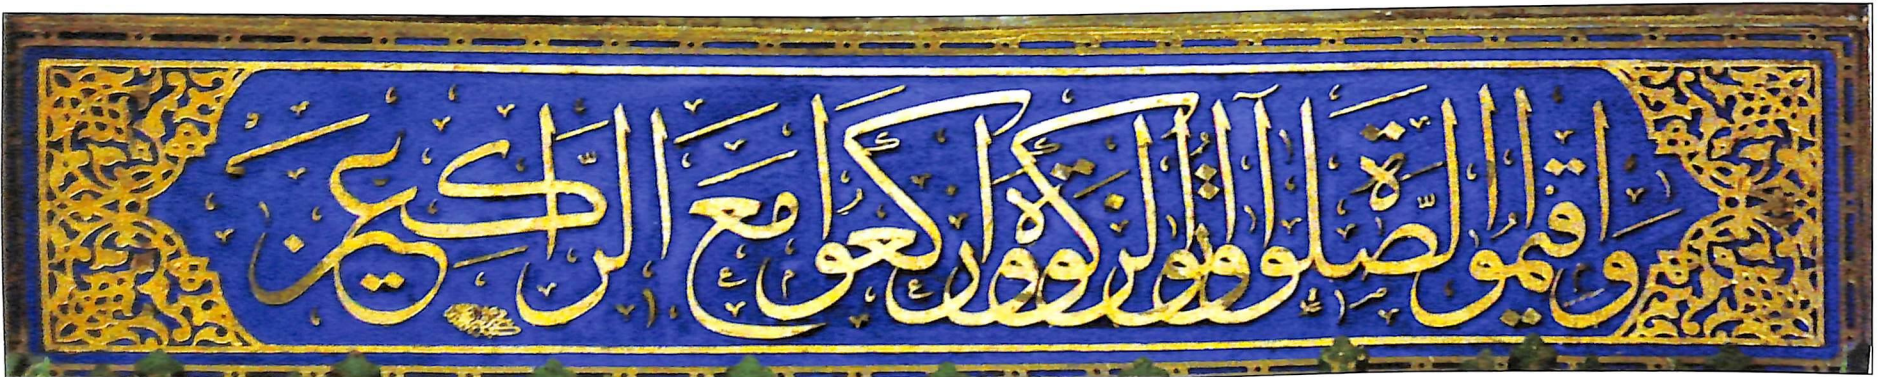 وَاَقِيمُوا الصَّلٰوةَ وَآتُوا الزَّكٰوةَ وَارْكَعُوا مَعَ الرَّاكِعِينَ